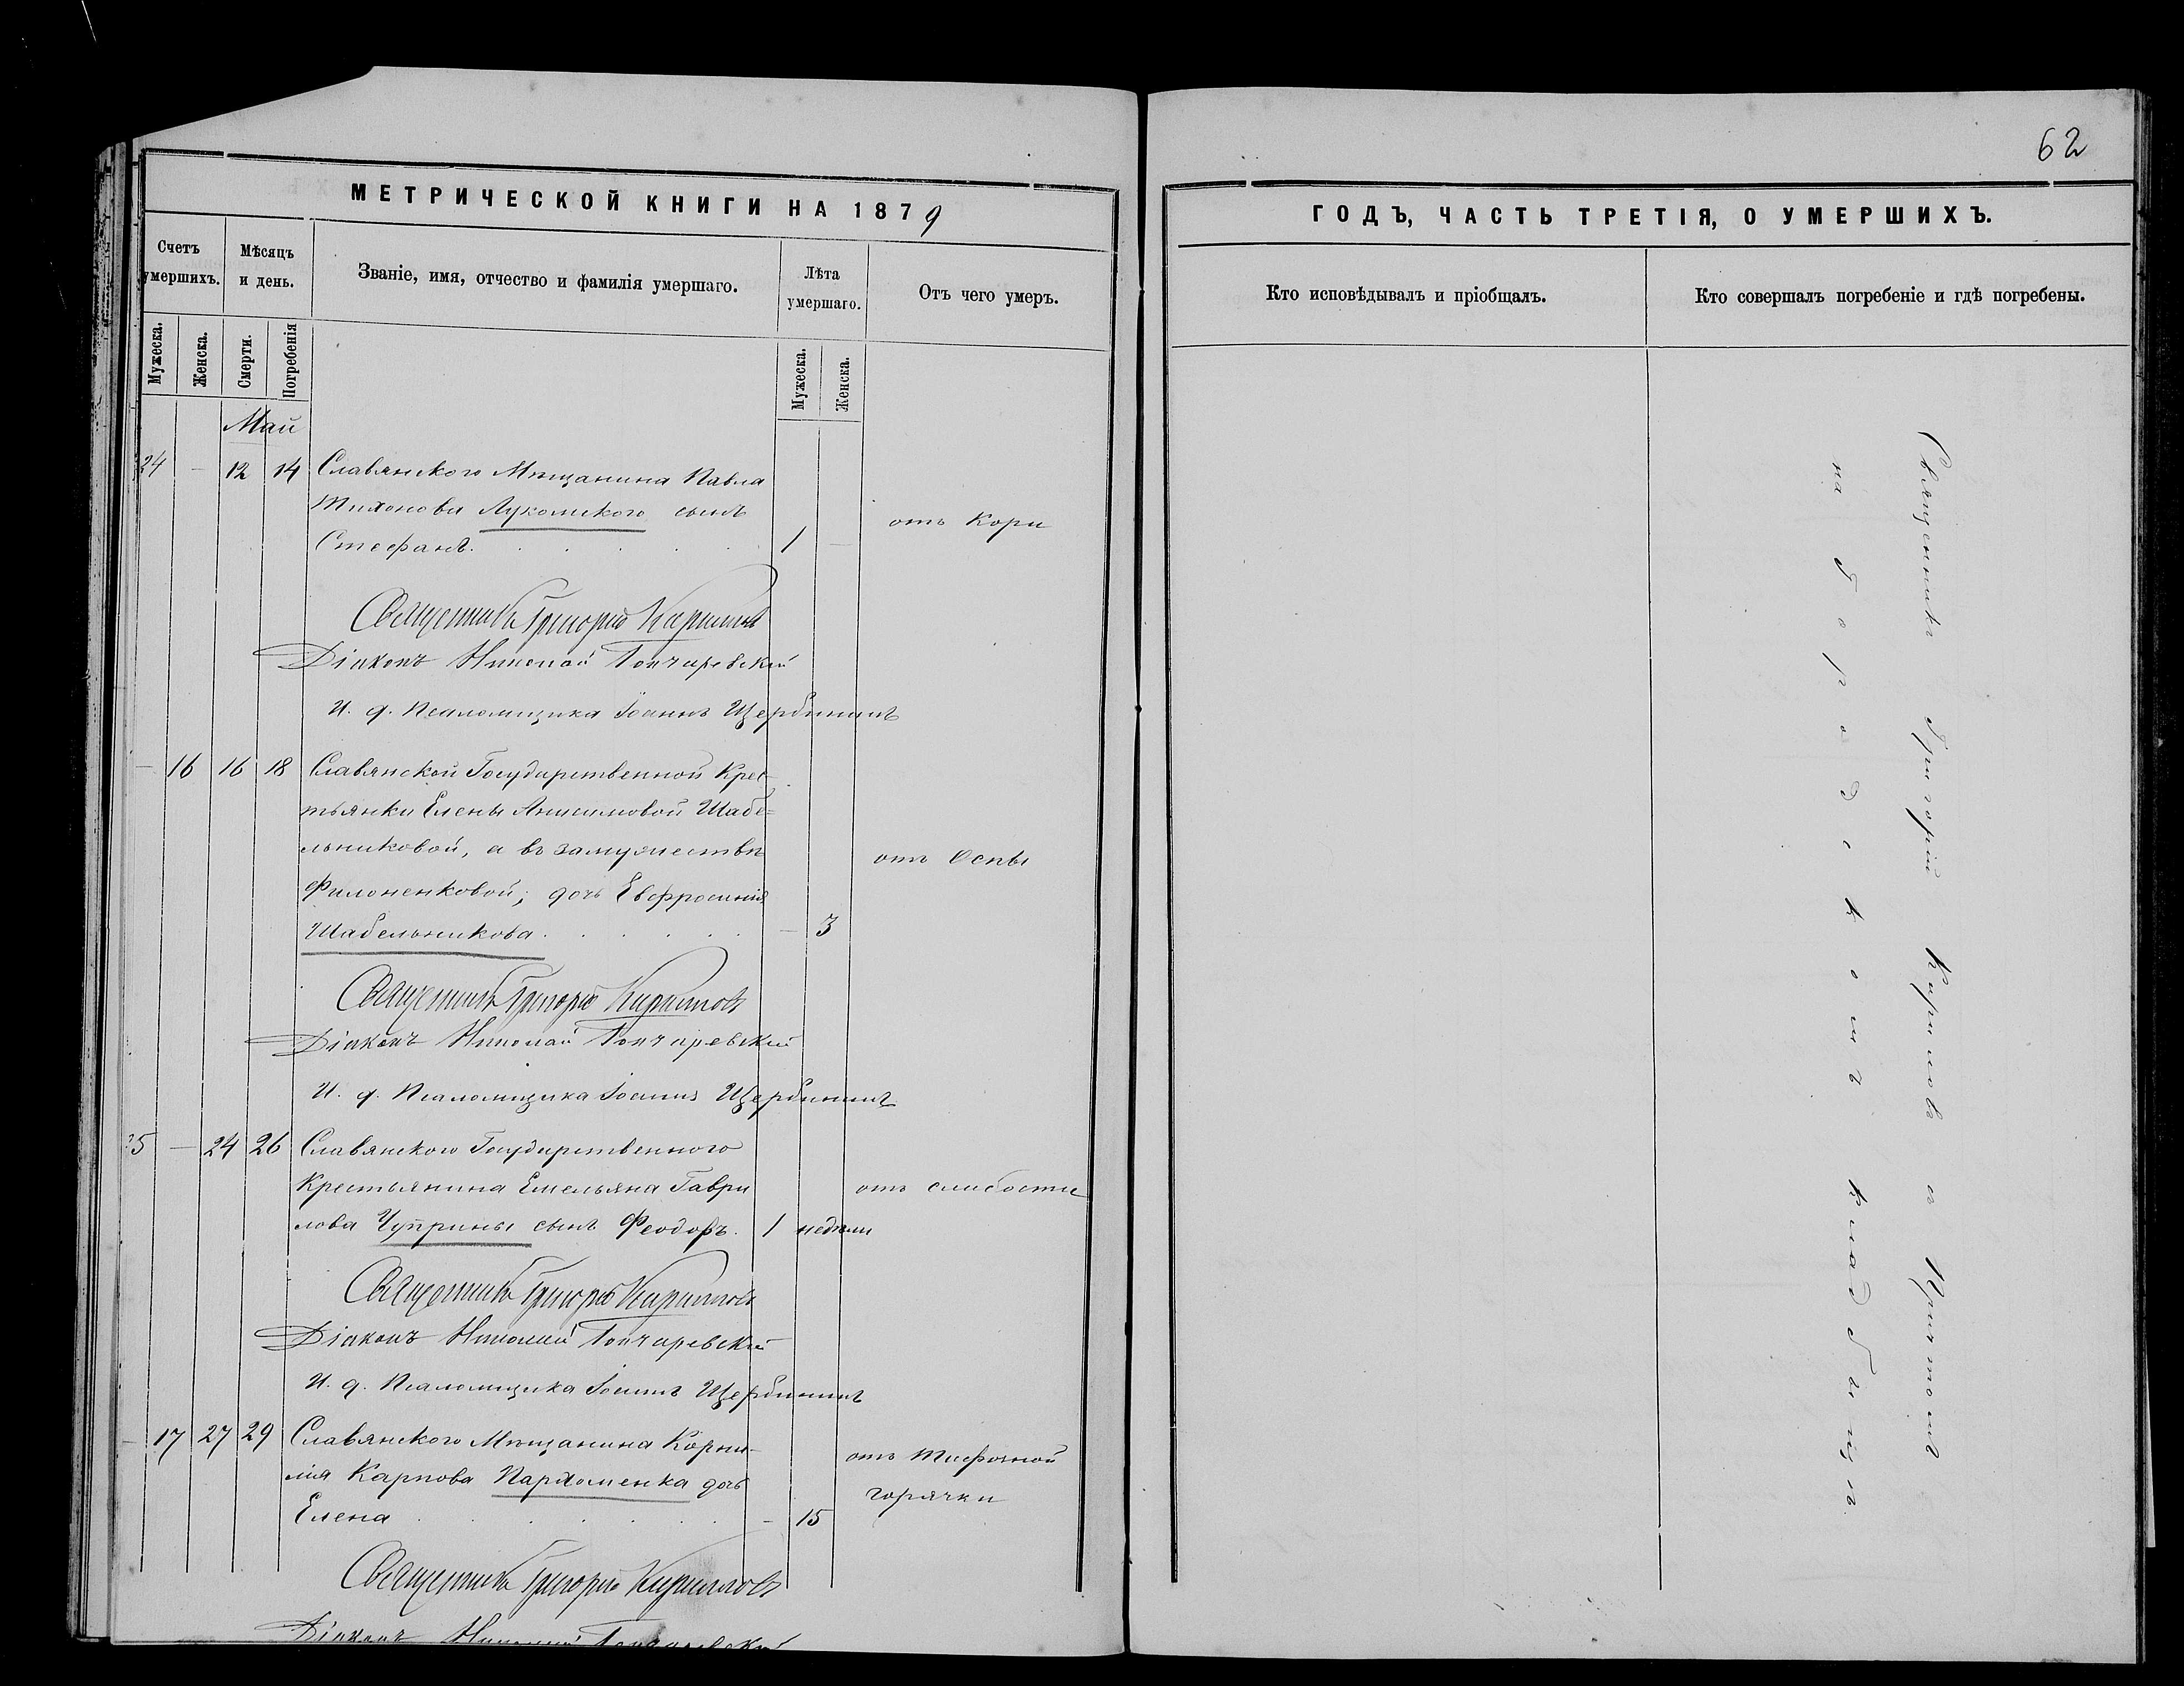 62
МЕТРИЧЕСКОЙ КНИГИ НА 1879
ГОДЪ, ЧАСТЬ ТРЕТІЯ, О УМЕРШИХЪ.
Счетъ умершихъ.
Мѣсяцъ и день.
Званіе, имя, отчество и фамилія умершаго.
Лѣта умершаго.
Отъ чего умеръ.
Кто исповѣдывалъ и пріобщалъ.
Кто совершалъ погребеніе и гдѣ погребены.
Мужеска.
Женска.
Смерти.
Погребенія
Мужеска.
Женска.
Май
24 – 12 14 Славянского Мѣщанина Павла
Тихонова Лукомского сынъ
Стефанъ. 1 – отъ Кори
Священникъ Григорій Кирилловъ
Діаконъ Николай Гончаревскій
И. д. Псаломщика Іоаннъ Щербининъ
– 16 16 18 Славянской Государственной Крес-
тьянки Елены Анисимовой Шабе=
льниковой, а въ замужествѣ
Филоненковой; дочь Евфросинія
Шабельникова. – 3 отъ Оспы
Священникъ Григорій Кирилловъ
Діаконъ Николай Гончаревскій
И. д. Псаломщика Іоаннъ Щербининъ
25 – 24 26 Славянского Государственного
Крестьянина Емельяна Гаври
лова Чуприны сынъ Феодоръ. 1 недѣли отъ слабости
Священникъ Григорій Кирилловъ
Діаконъ Николай Гончаревскій
И. д. Псаломщика Іоаннъ Щербининъ
– 17 27 29 Славянского Мѣщанина Корни-
лія Карпова Пархоменка дочь
Елена – 15 отъ тифозной
горячки
Священникъ Григорій Кирилловъ
Діаконъ Николай Гончаревскій
Священникъ Григорій Кирилловъ съ Причтомъ
на Городскомъ кладбищѣ